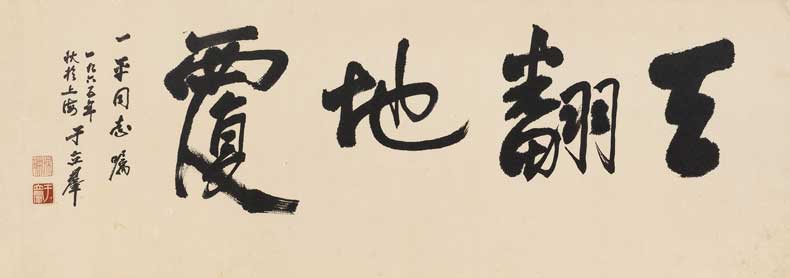 天翻地覆
一平同志嘱
一九六五年
秋於上海 于立群